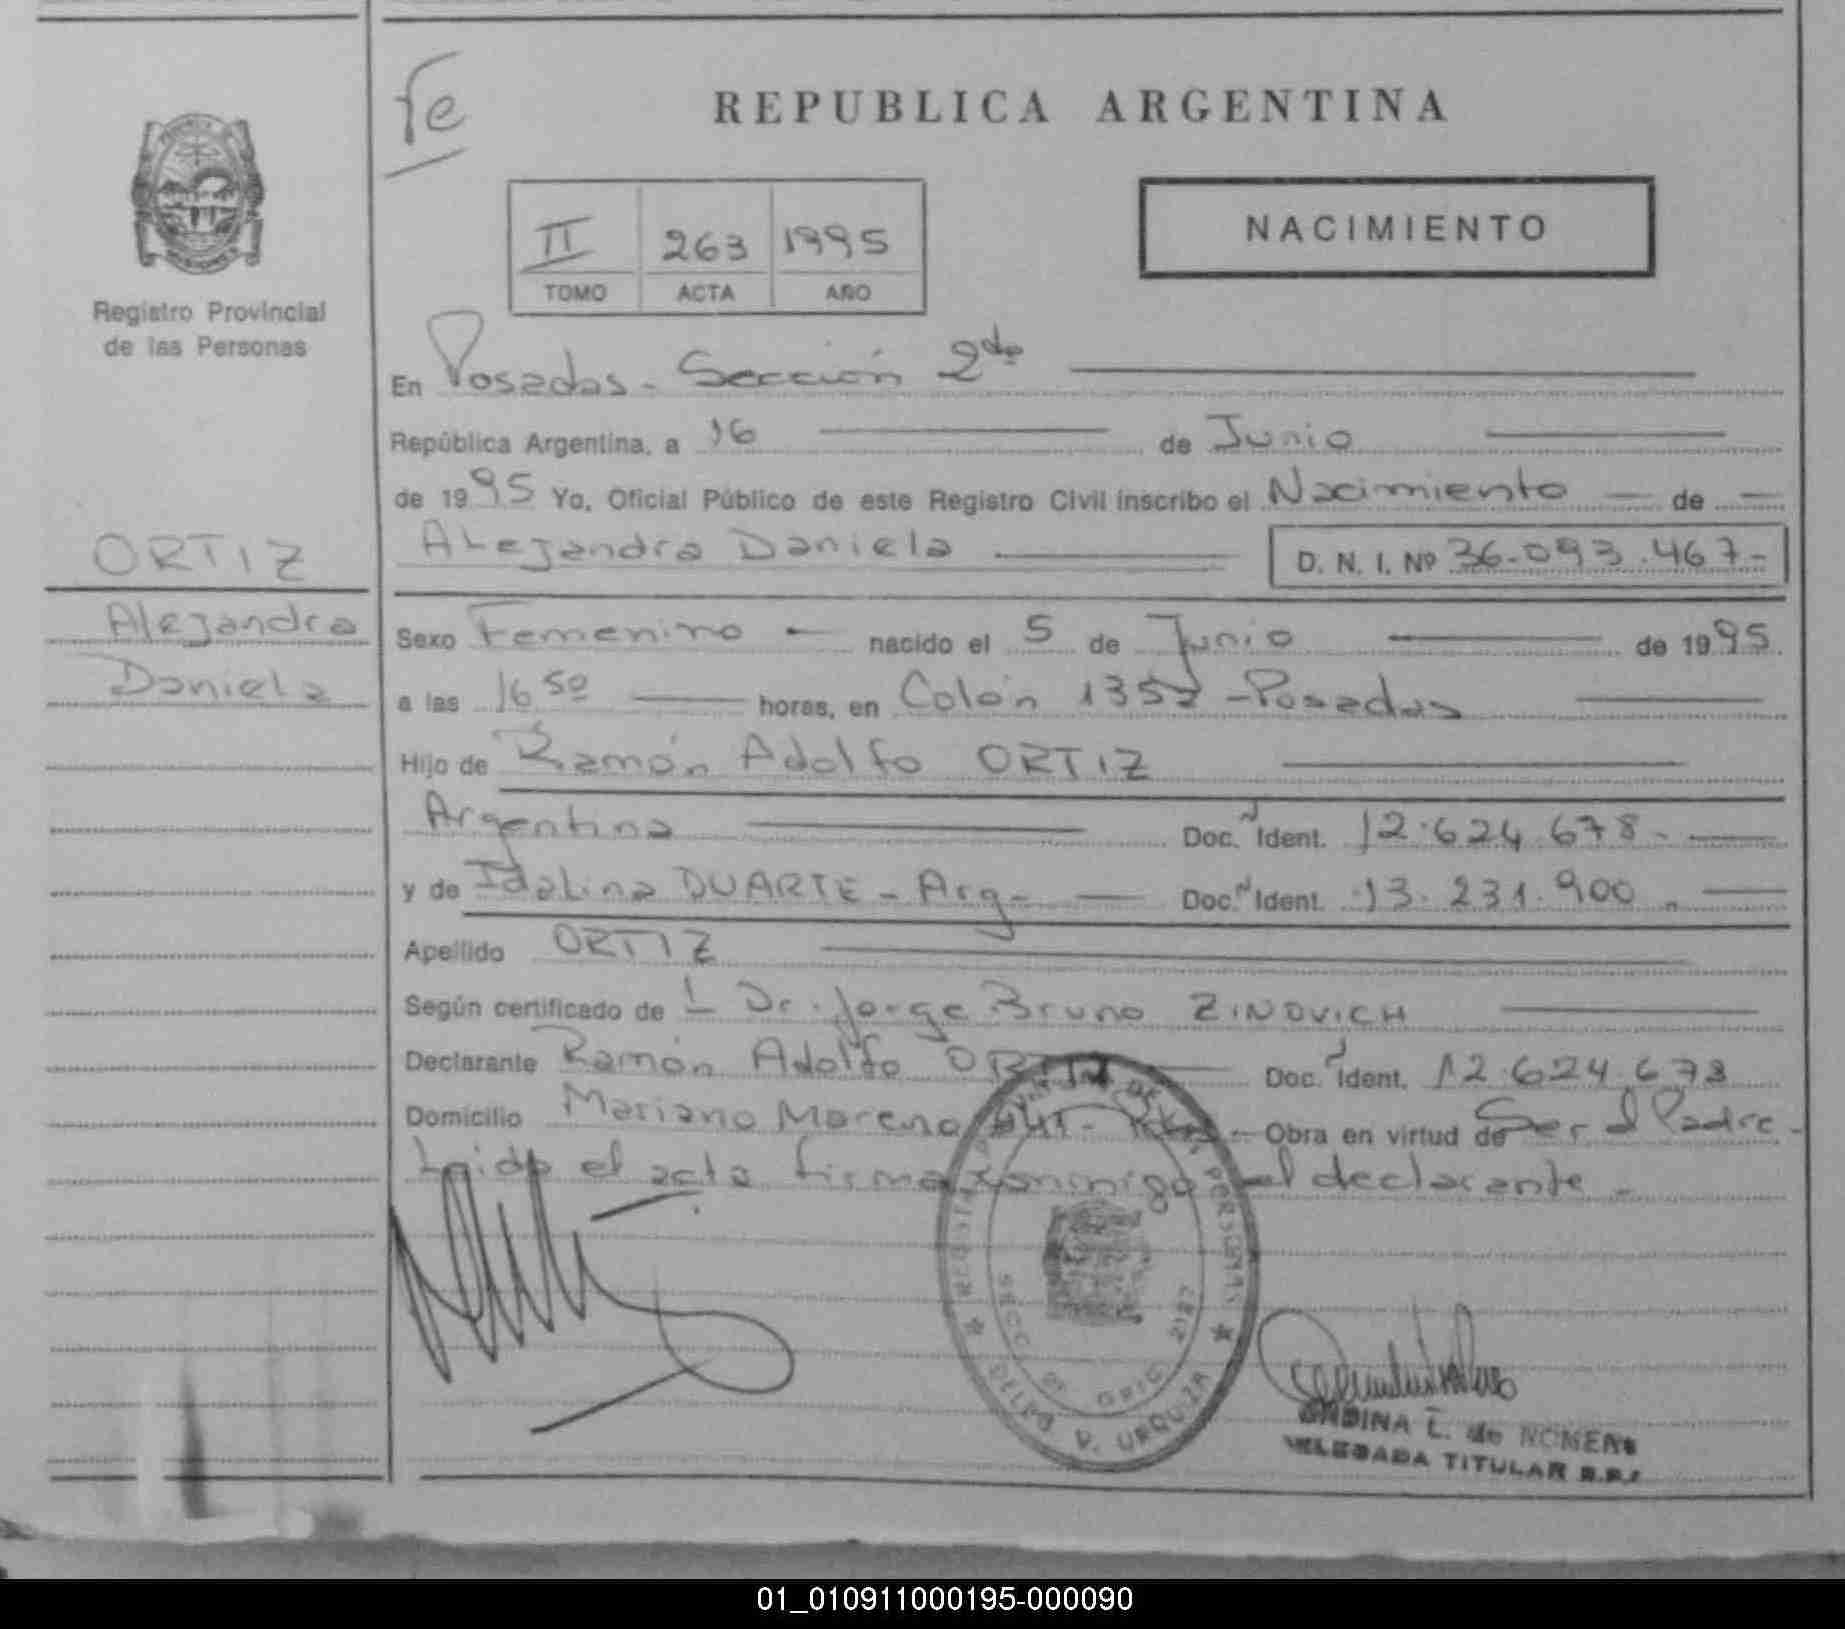 fe
REPUBLICA ARGENTINA
NACIMIENTO
II 263 1995
TOMO ACTA AÑO
Registro Provincial
de las Personas
En Posadas - Sección 2da
República Argentina, a 16 de Junio
de 1995 Yo, Oficial Público de este Registro Civil inscribo el Nacimiento de
Alejandra Daniela D. N. I. Nº 36.093.467-
ORTIZ
Alejandra
Daniela
Sexo Femenino nacido el 5 de Junio de 1995
a las 16 50 horas, en Colón 1357 - Posadas
Hijo de Ramón Adolfo ORTIZ
Argentina Doc. Ident. 12.624.678-
y de Idalina DUARTE - Arg- Doc. Ident. 13.231.900
Apellido ORTIZ
Según certificado de L Dr. Jorge Bruno ZINOVICH
Declarante Ramón Adolfo ORTIZ Doc. Ident. 12.624.678
Domicilio Mariano Moreno - Obra en virtud de Ser el Padre -
Leida el acta firma conmigo el declarante -
REGISTRO PROVINCIAL DE LAS PERSONAS
SECC 2a
DELFO P. URQUIZA
L. de
DELEGADA TITULAR R.P.
01_010911000195-000090